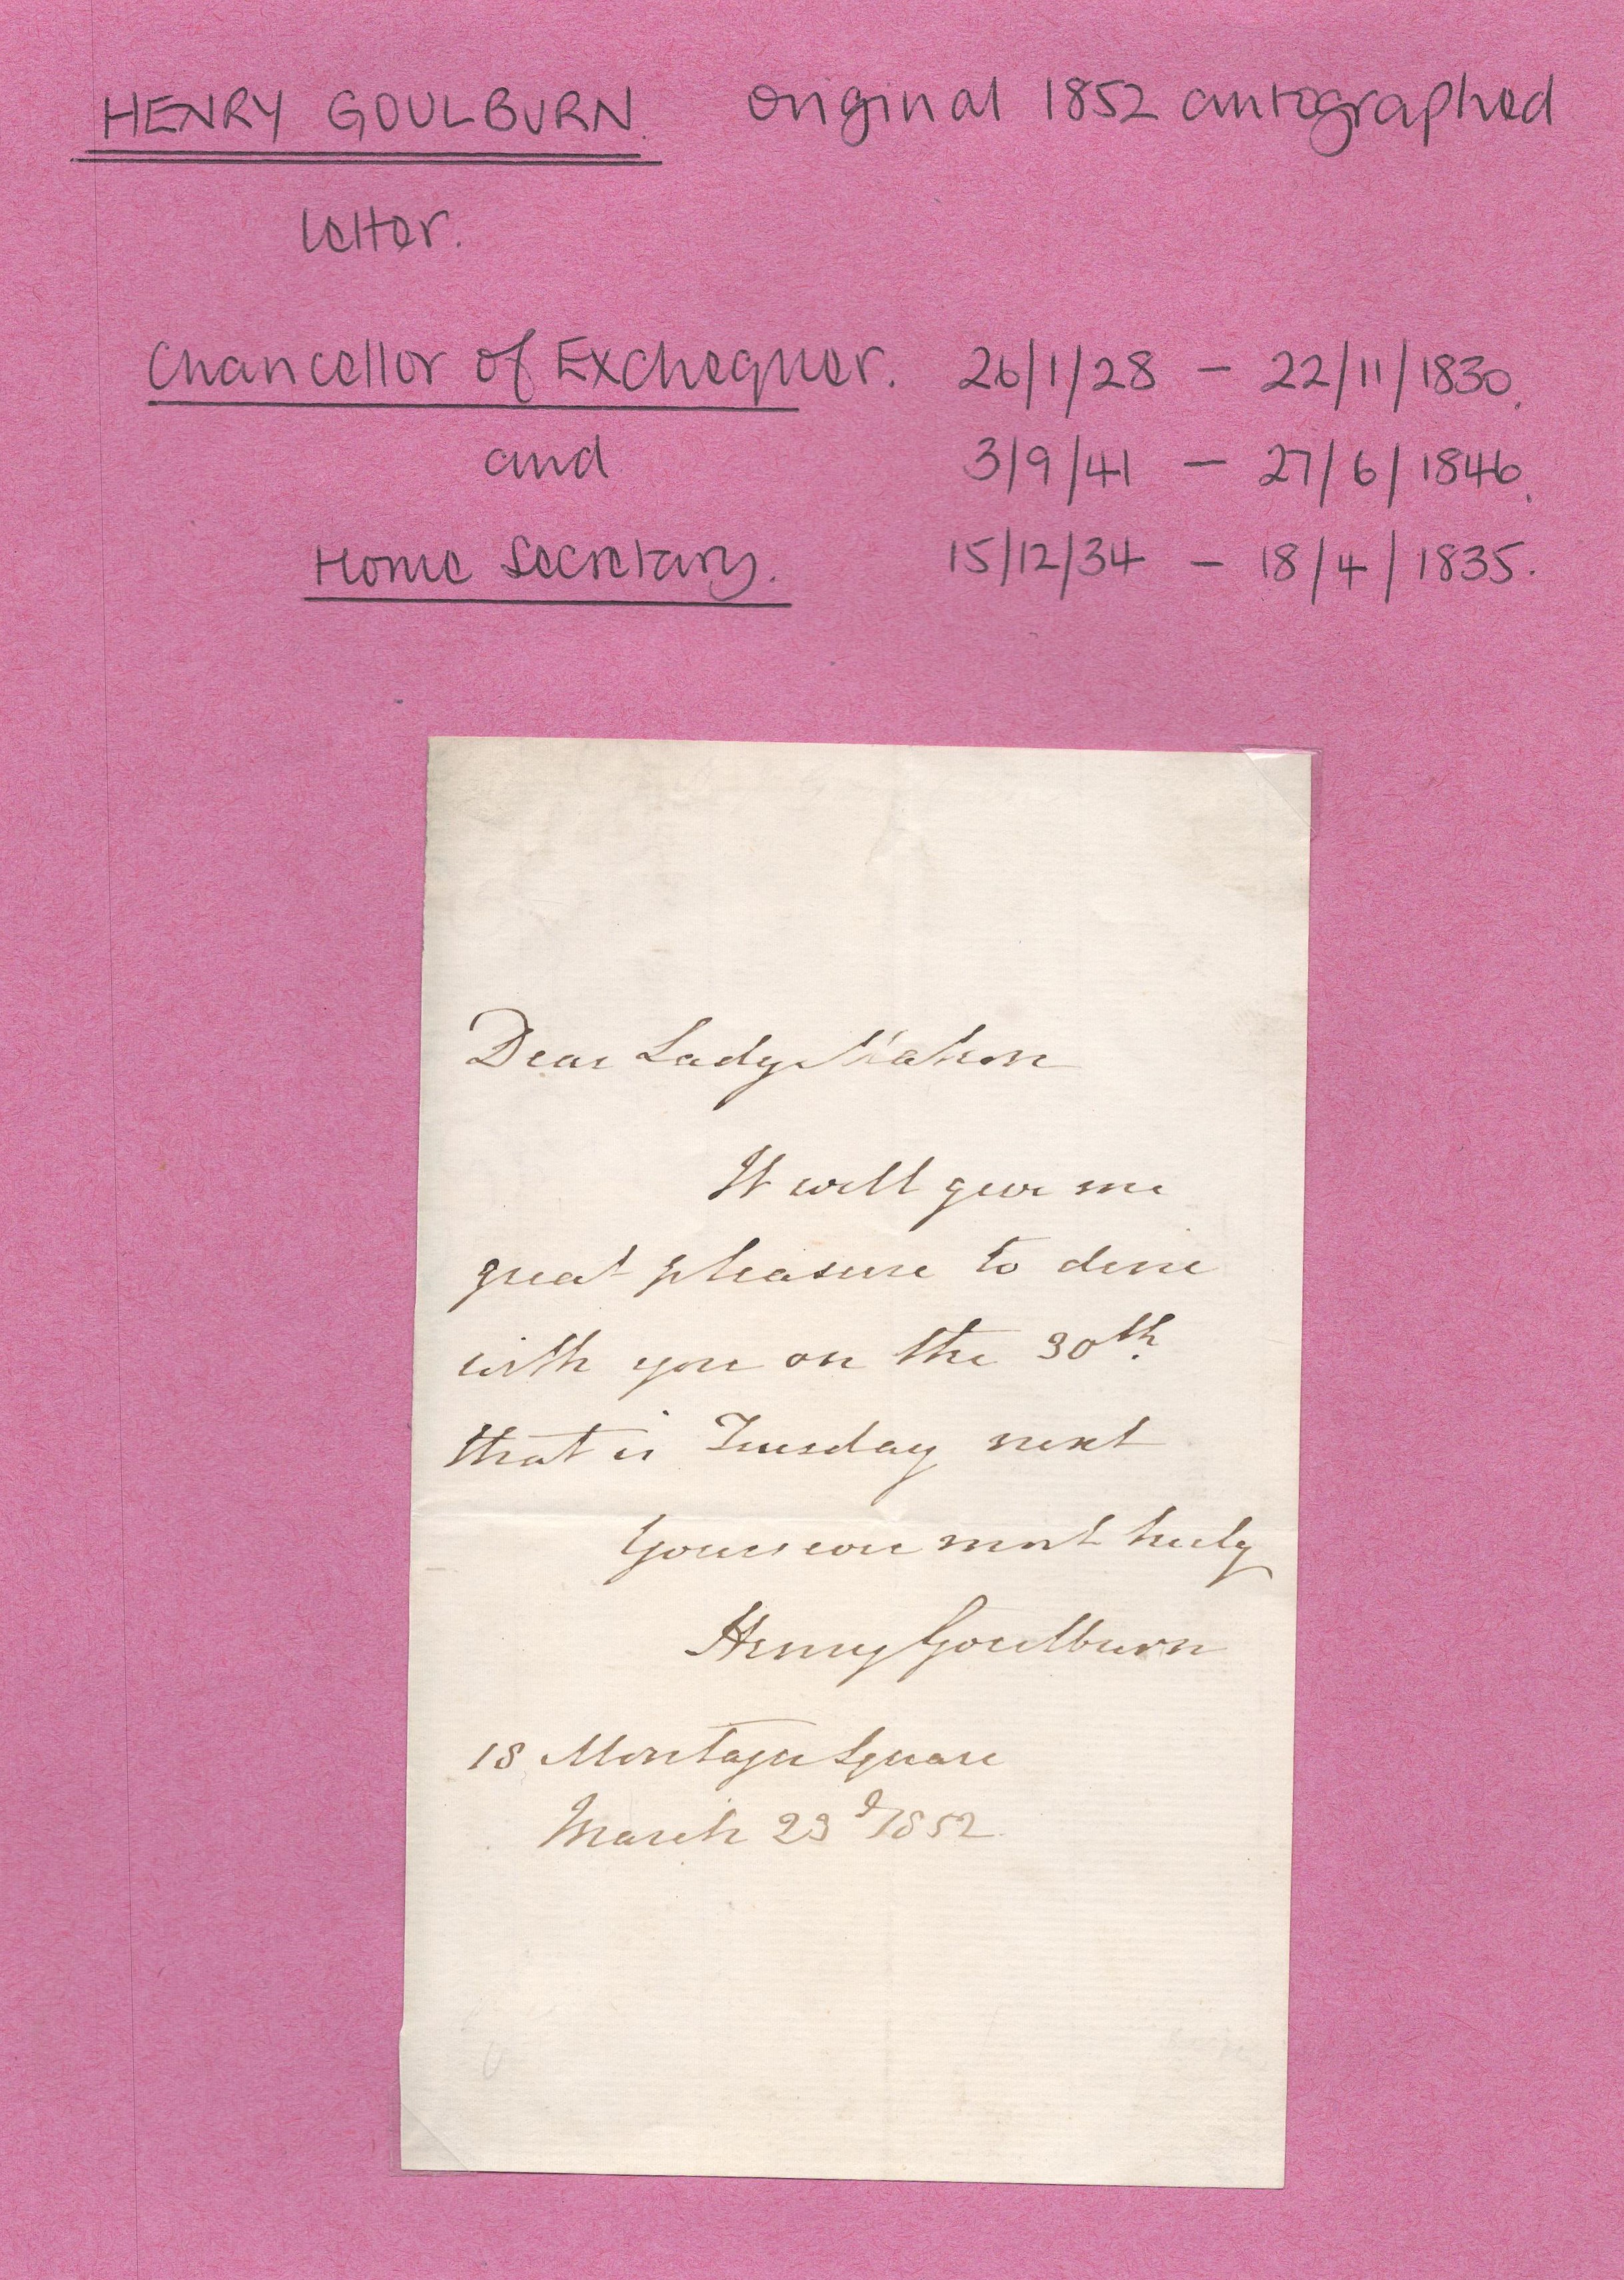 HENRY GOULBURN. original 1852 autographed
letter.
Chancellor of Exchequer. 26/1/28 – 22/11/1830.
and 3/9/41 – 27/6/1846.
Home Secretary. 15/12/34 – 18/4/1835.
Dear Lady Mahon
It will give me
great pleasure to dine
with you on the 30th.
that is Tuesday next
Yours ever most truly
Henry Goulburn
18 Montagu Square
March 23d 1852.